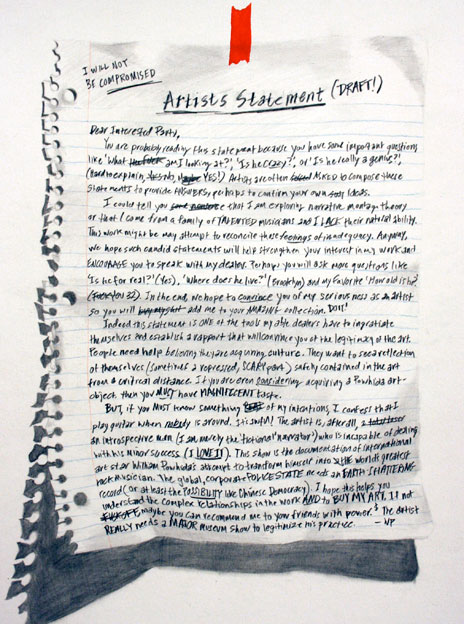 I WILL NOT
BE COMPROMISED
Artists Statement (DRAFT!)
Dear Interested Party,
You are probably reading this statement because you have some important questions
like 'What am I looking at?', 'Is he crazy?', or 'Is he really a genius?',
(hard to explain, YES!) Artists are often ASKED to compose these
statements to provide ANSWERS, perhaps to confirm your own ideas.
I could tell you that I am exploring narrative montage theory
or that I come from a family of TALENTED musicians and I LACK their natural ability.
This work might be may attempt to reconcile those feelings of inadequacy. Anyway,
we hope such candid statements will help strengthen your interest in my work and
ENCOURAGE you to speak with my dealer. Perhaps you will ask more questions like
'Is he for real?' (Yes), 'Where does he live?' (Brooklyn) and my favorite 'How old is he?'
32). In the end, we hope to convince you of my seriousness as an artist
so you will add me to your AMAZING collection.
Indeed this statement is ONE of the tools my able dealers have to ingratiate
themselves and establish a rapport that will convince you of the legitimacy of the art.
People need help believing they are acquiring culture. They want to see a reflection
of themselves (sometimes a repressed, SCARY part) safely contained in the art
from a critical distance. If you are even considering acquiring a Powhida art-
object then you MUST have MAGNIFICENT taste.
BUT, if you MUST know something of my intentions, I confess that I
play guitar when nobody is around. It is The artist is, after all,
an introspective man (I am merely the fictional 'narrator') who is incapable of dealing
with his minor success (I LOVE IT). This show is the documentation of international
art star William Powhida's attempt to transform himself into THE world's greatest
rock musician. The global, corporate POLICE STATE needs an EARTH SHATTERING
record (or at least the POSSIBILITY like Chinese Democracy). I hope this helps you
understand the complex relationships in the work AND to BUY MY ART. If not
maybe you can recommend me to your friends with power. The artist
REALLY needs a MAJOR museum show to legitimize his practice. – WP